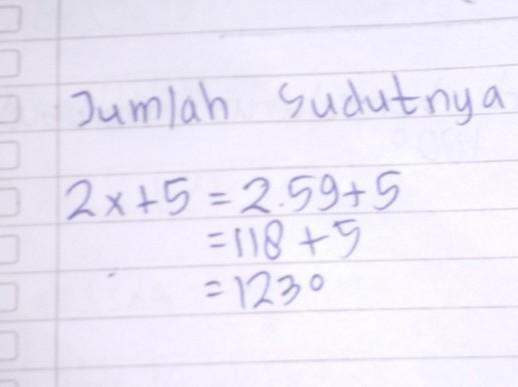 Jumlah Sudutnya
2x+5 = 2.59+5
= 118 + 5
= 123°